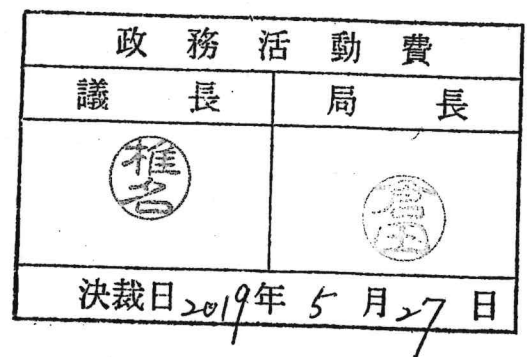 政務活動費
議長 局長
椎名 倉田
決裁日2019年5月27日